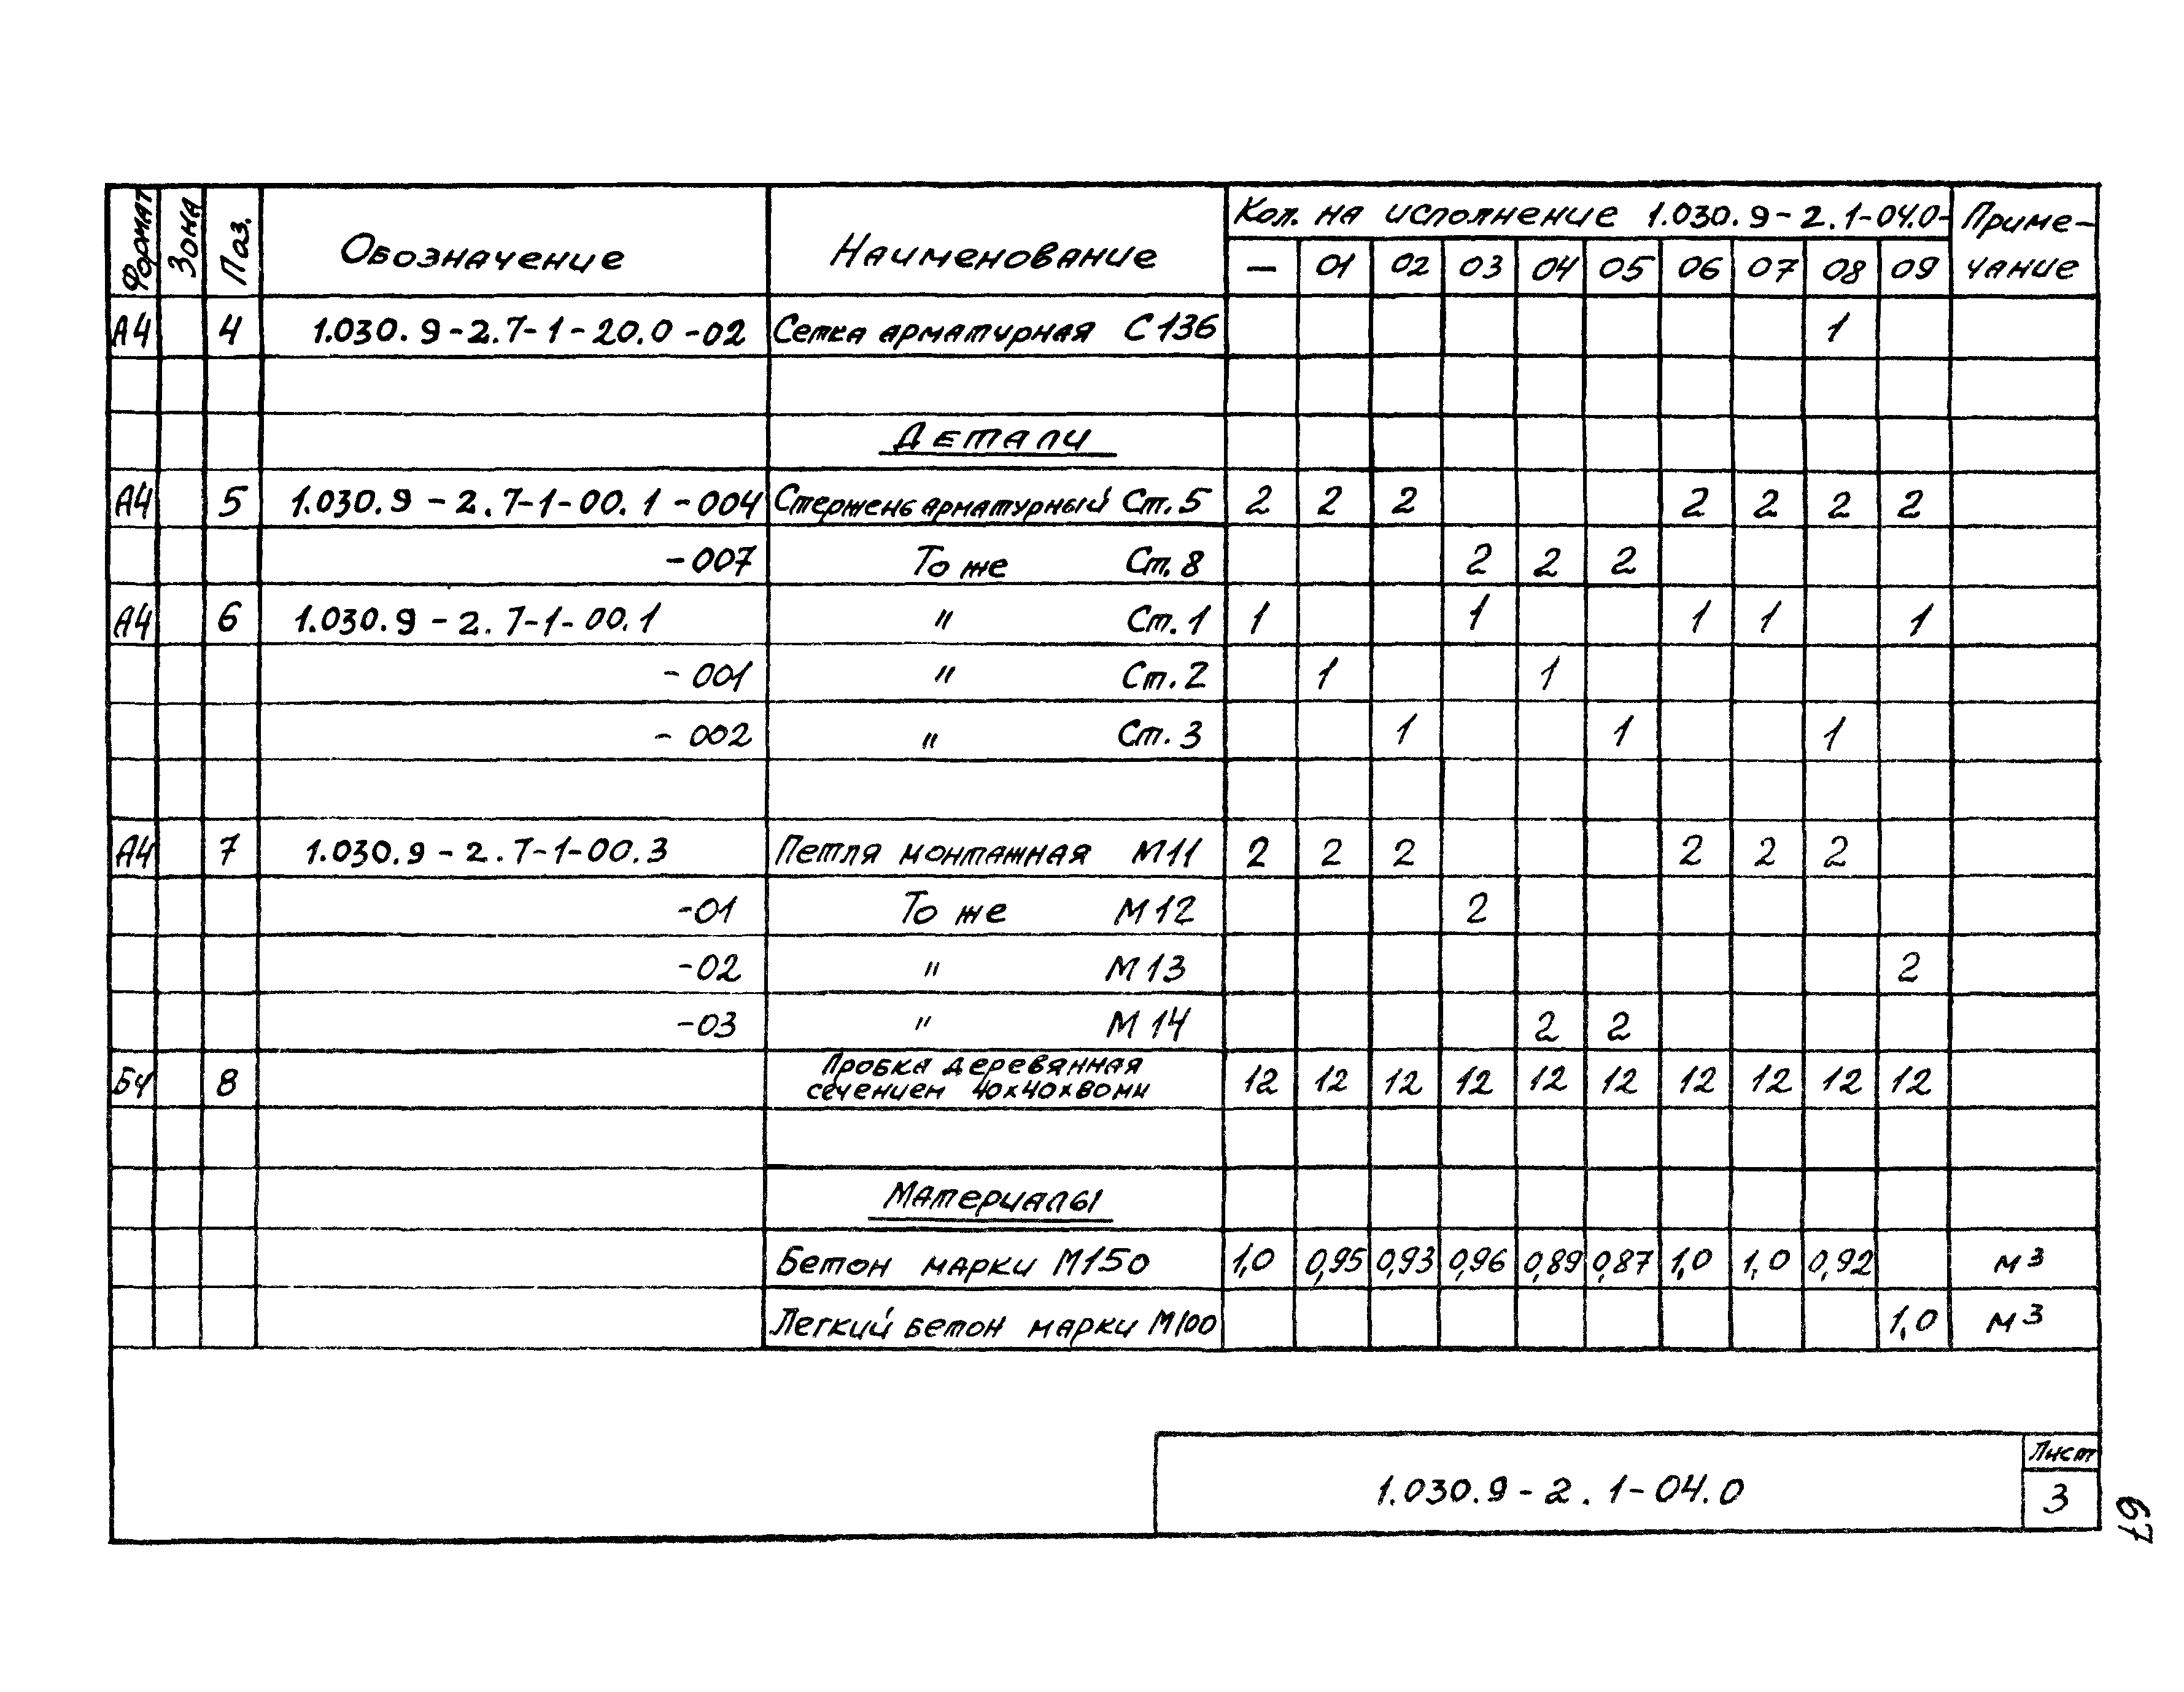 Формат Зона Поз. Обозначение Наименование Кол. на исполнение 1.030.9-2.1-04.0- Приме-
— 01 02 03 04 05 06 07 08 09 чание
А4 4 1.030.9-2.7-1-20.0-02 Сетка арматурная С136 1
Детали
А4 5 1.030.9-2.7-1-00.1-004 Стержень арматурный Ст.5 2 2 2 2 2 2 2
-007 То же Ст.8 2 2 2
А4 6 1.030.9-2.7-1-00.1 " Ст.1 1 1 1 1 1
-001 " Ст.2 1 1
-002 " Ст.3 1 1 1
А4 7 1.030.9-2.7-1-00.3 Петля монтажная М11 2 2 2 2 2 2
-01 То же М12 2
-02 " М13 2
-03 " М14 2 2
Пробка деревянная
БЧ 8 сечением 40х40х80мм 12 12 12 12 12 12 12 12 12 12
Материалы
Бетон марки М150 1,0 0,95 0,93 0,96 0,89 0,87 1,0 1,0 0,92 м3
Легкий бетон марки М100 1,0 м3
Лист
1.030.9-2.1-04.0 3
67